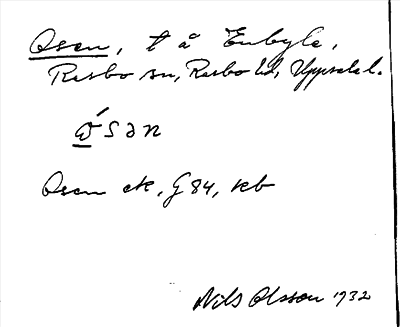 Osen, t å Enbyle,
Rasbo sn, Rasbo hd, Uppsala l.
ɷ́sən
Osen ek, G 84, kb
Nils Olsson 1932